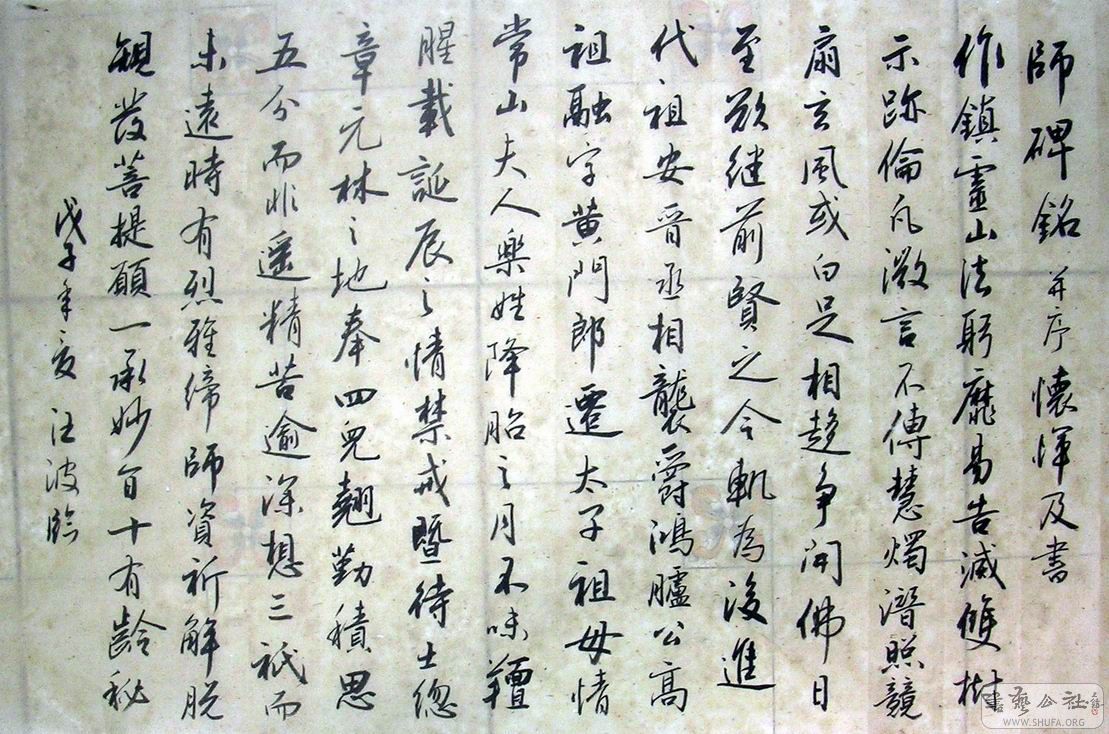 師碑銘并序懷惲及書
作鎮靈山法躬靡易告滅雙樹
示跡倫凡微言不傳慧燭潛照競
扇玄風或白足相趍爭開佛日
至欲継前賢之令軌為後進
代祖安晉丞相襲爵鴻臚公高
祖融字黄門郎遷太子祖母情
常山夫人樂姓降胎之月不味羶
腥載誕辰之情禁戒暨待士總
章元林之地奉四兒翹勤積思
五分而非遥精苦逾深想三祇而
未遠時有烈雅締師資祈解脱
親發菩提願一承妙旨十有齡秘
戊子年夏 汪波臨
書藝公社
WWW.SHUFA.ORG